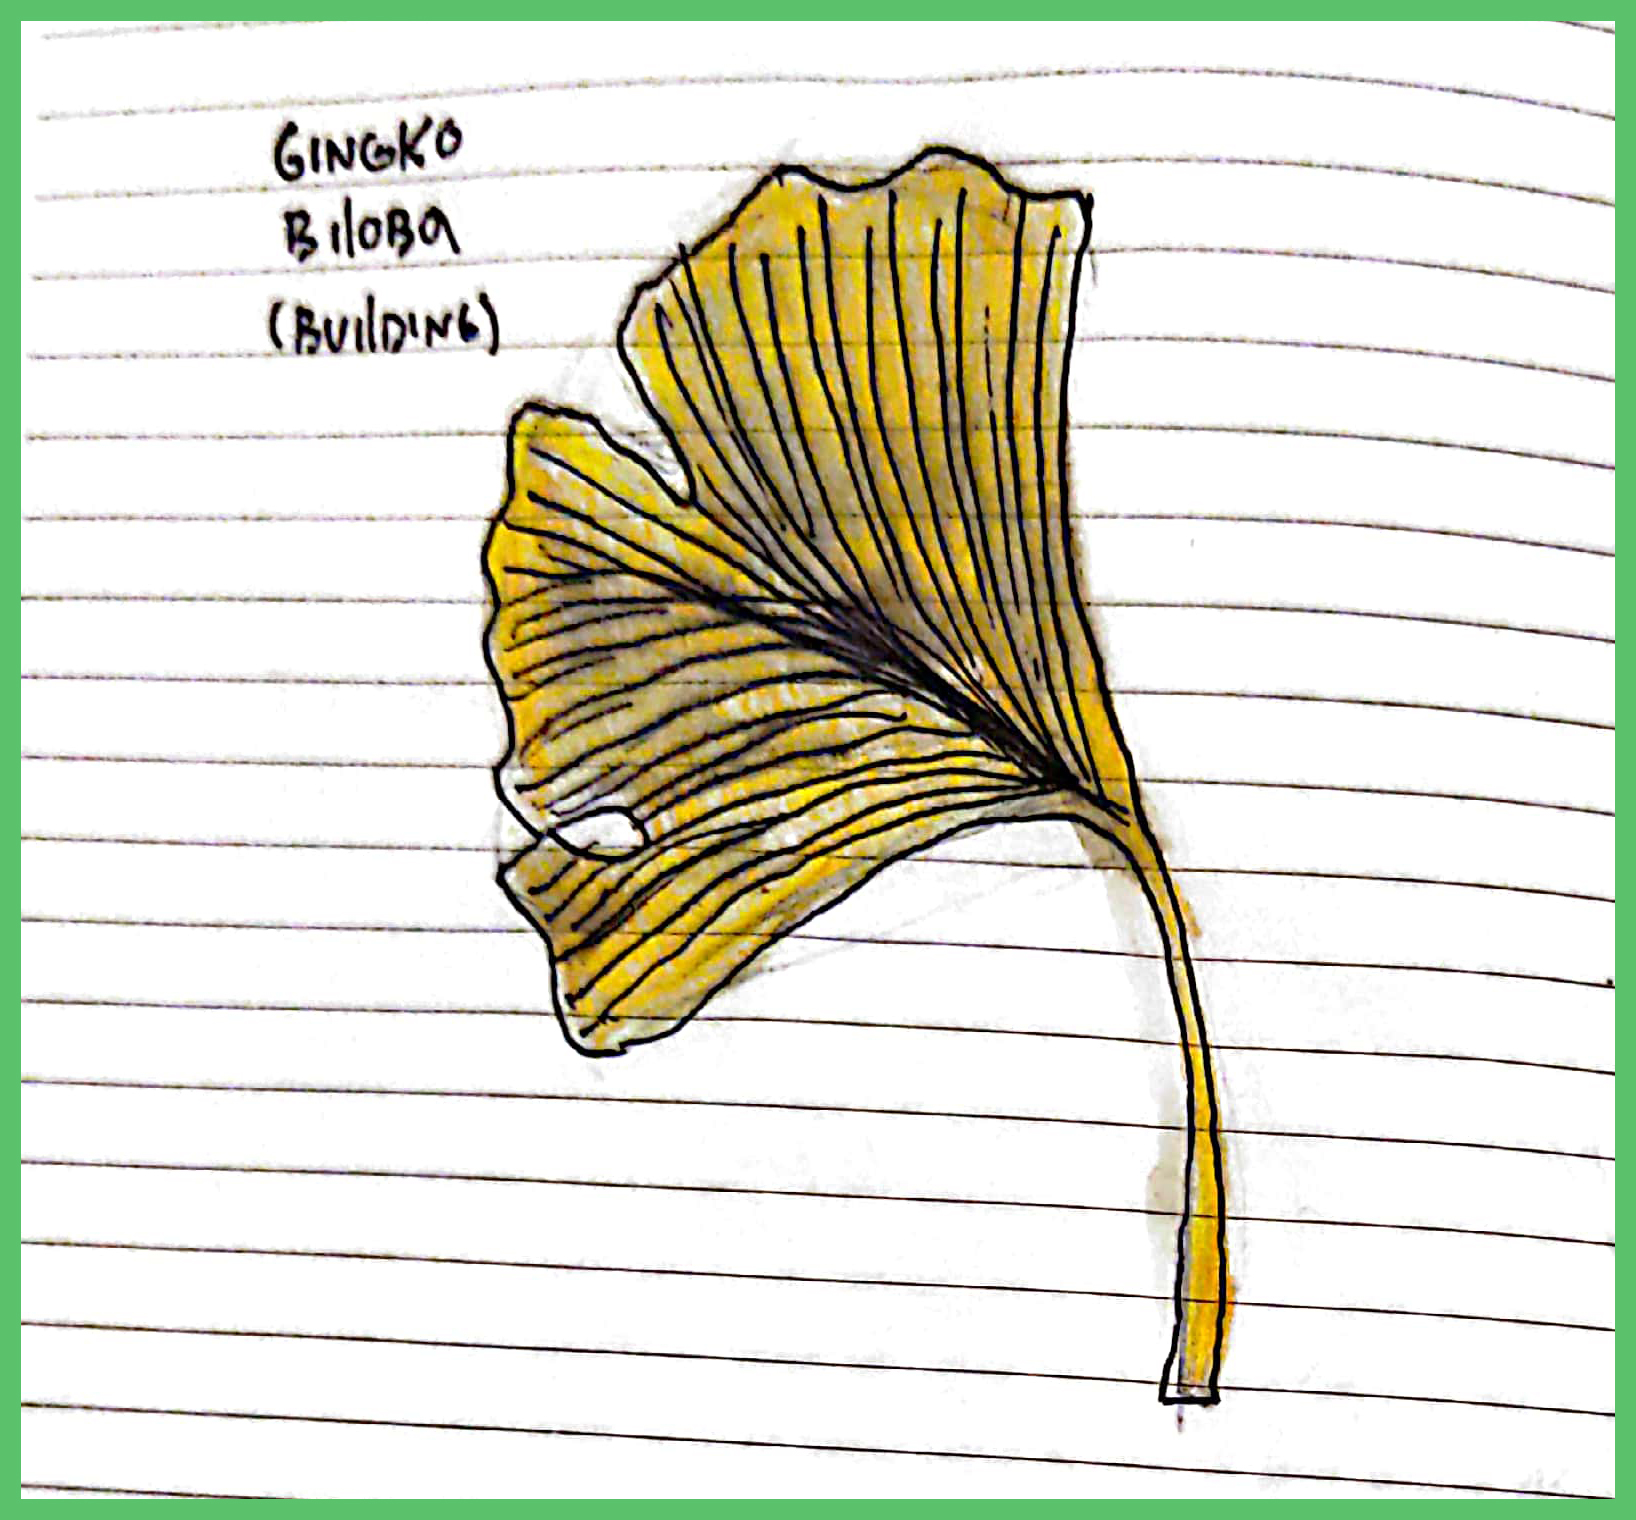 GINGKO
BILOBA
(BUILDING)